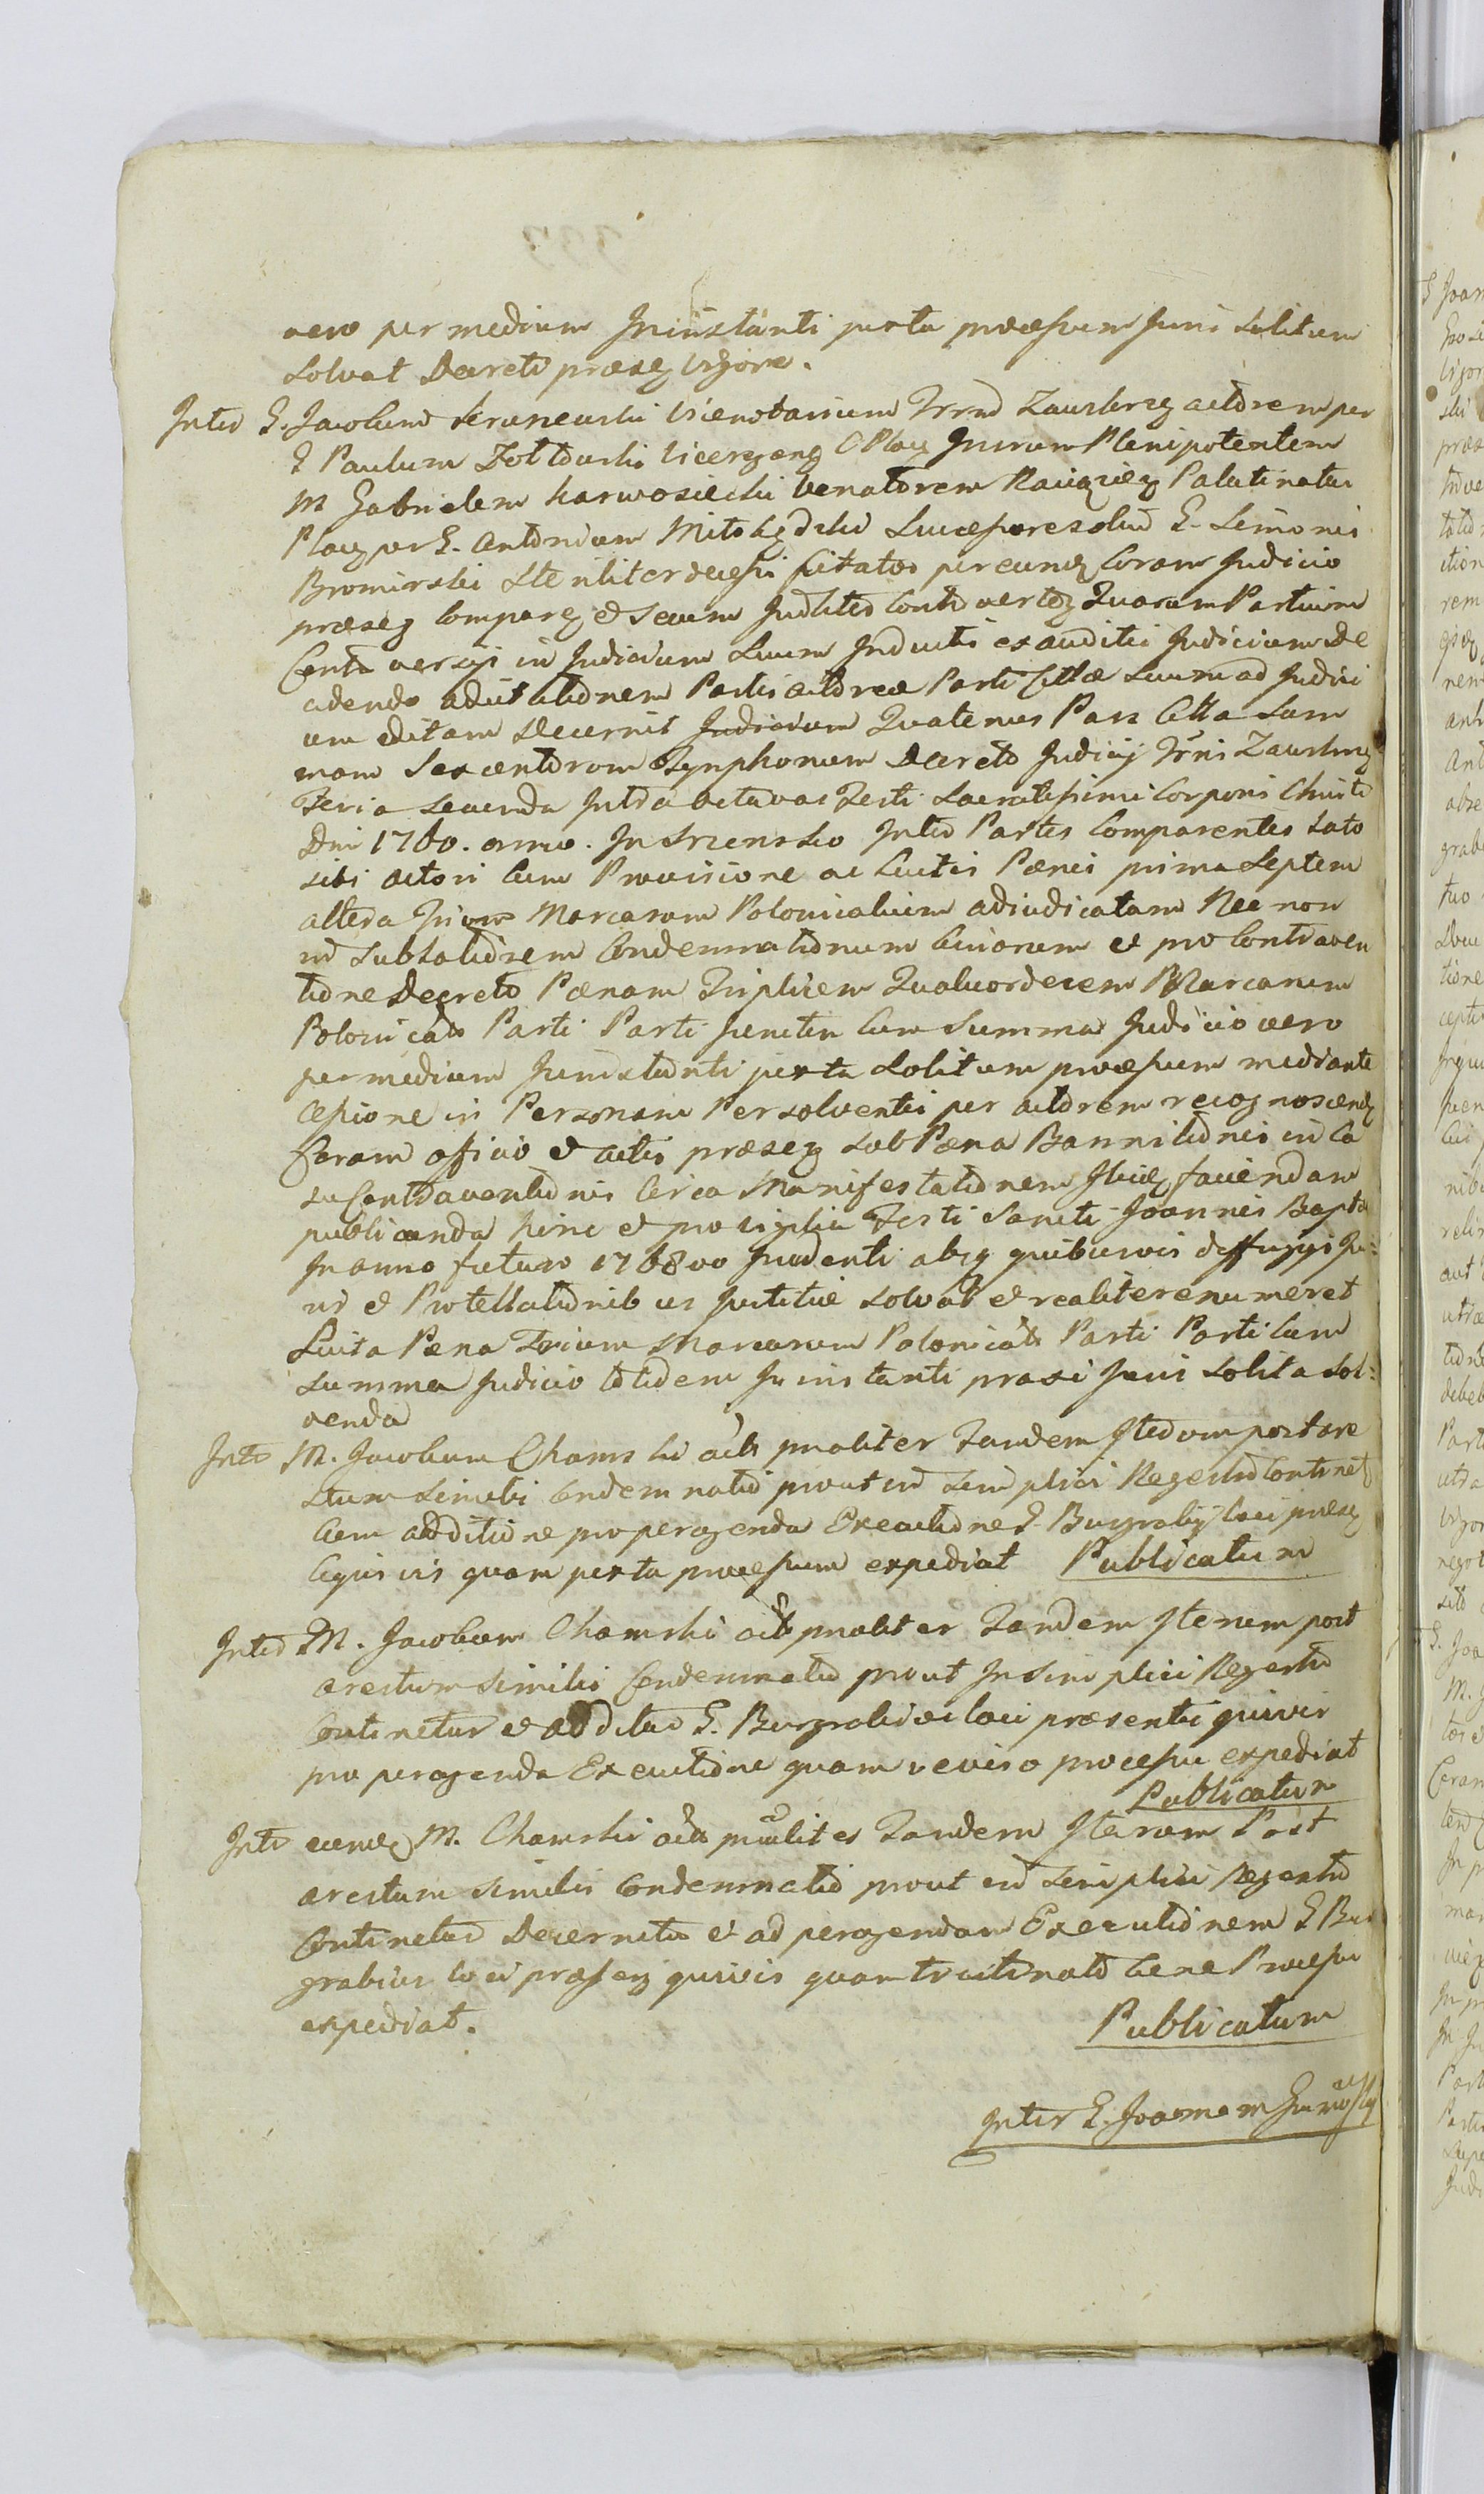 vero per medium Juri instanti juxta processum Juris solitum
solvat Decreti præseq vigore.
Inter G. Jacobum Krunewski Vicenotarium Trrm Zawskrzeg actorem per
G Paulum Zołtowski Viceregeng C Ploceg Jurium Plenipotentem
M Gabrielem Karwosiecki Venatorem Raciązieg Palatinatus
Ploceg per G. Antonium Mito Successores olim G. Simonis
Bromirski Steriliter decessi Citatos per eundg Coram Judicio
præseg Compareg et secum Judlites Controvertieg Quarum Partium
Controversijs in Judicium Suum Inductis exauditis Judicium De
cidendo ad Citationem Partis actoreæ Parti Cittæ Suum ad Judici
um editam Decernit Judicium Quatenus Pars Citta Sum
mam Sexcentorum Tynphonum Decreto Judicij Trrni Zawskrzeg
Feria Secunda Intra octavas Festi Sacratissimi Corporis Christi
Dni 1760. anno. In Srzensko Inter Partes Comparentes Lato
sibi actori Cum Provisione ac Luitis Pænis prima Septem
altera Trium Marcarum Polonicalium adiudicatam Nec non
in Subsalidrem Condemnationum Civiorum et pro Contraven
tione Decreto Pænam Triplicem Quatuordecem Marcarum
Polonicals Parti Parti junctim Cum Summa Judicio vero
per medium Juri instanti juxta Solitum processum mediante
Cessione in Personam Persolventis per actorem recognoscendg
Coram officio et actis præseg sub Pæna Bannitionis in Ca
su Contraventionis Circa Manifestationem Ibidg faciendam
publicanda hinc et pro vigilia Festi Sancti Joannis Bapta
In anno futuro 1768vo Incidenti absq quibusvis diffugijs Ju:
ris et Protellationibus Justitiæ solvat et realiter enumeret
Luita Pæna Trium Marcarum Polonicals Parti Parti Cum
Summa Judicio totidem Jurinstanti praxi Juris solita sol:
venda
Inter M. Jacobum Chamski acts pnaliter Tandem Iterum post are
stum similis Condemnatio prout in simplici Regestro Continet
Cum additione pro peragenda Executione G. Burgrabij Loci præseg
Cujusvis quam juxta processum expediat Publicatum
Inter M. Jacobum Chamski acts pnaliter Tandem Iterum post
arestum similis Condemnatio prout In simplici Regestro
Continetur et additus G. Burgrabius Loci præsentis quivis
pro peragenda Executione quam reviso processu expediat
Publicatum
Inter eundg M. Chamski acts pnaliter Tandem Iterum Post
arestum similis Condemnatio prout in simplici Regestro
Continetur Decernitur et ad peragendam Executionem G Bur
grabius loci præseg quivis quam trutinato bene Processu
expediat. Publicatum
Inter G. Joannem